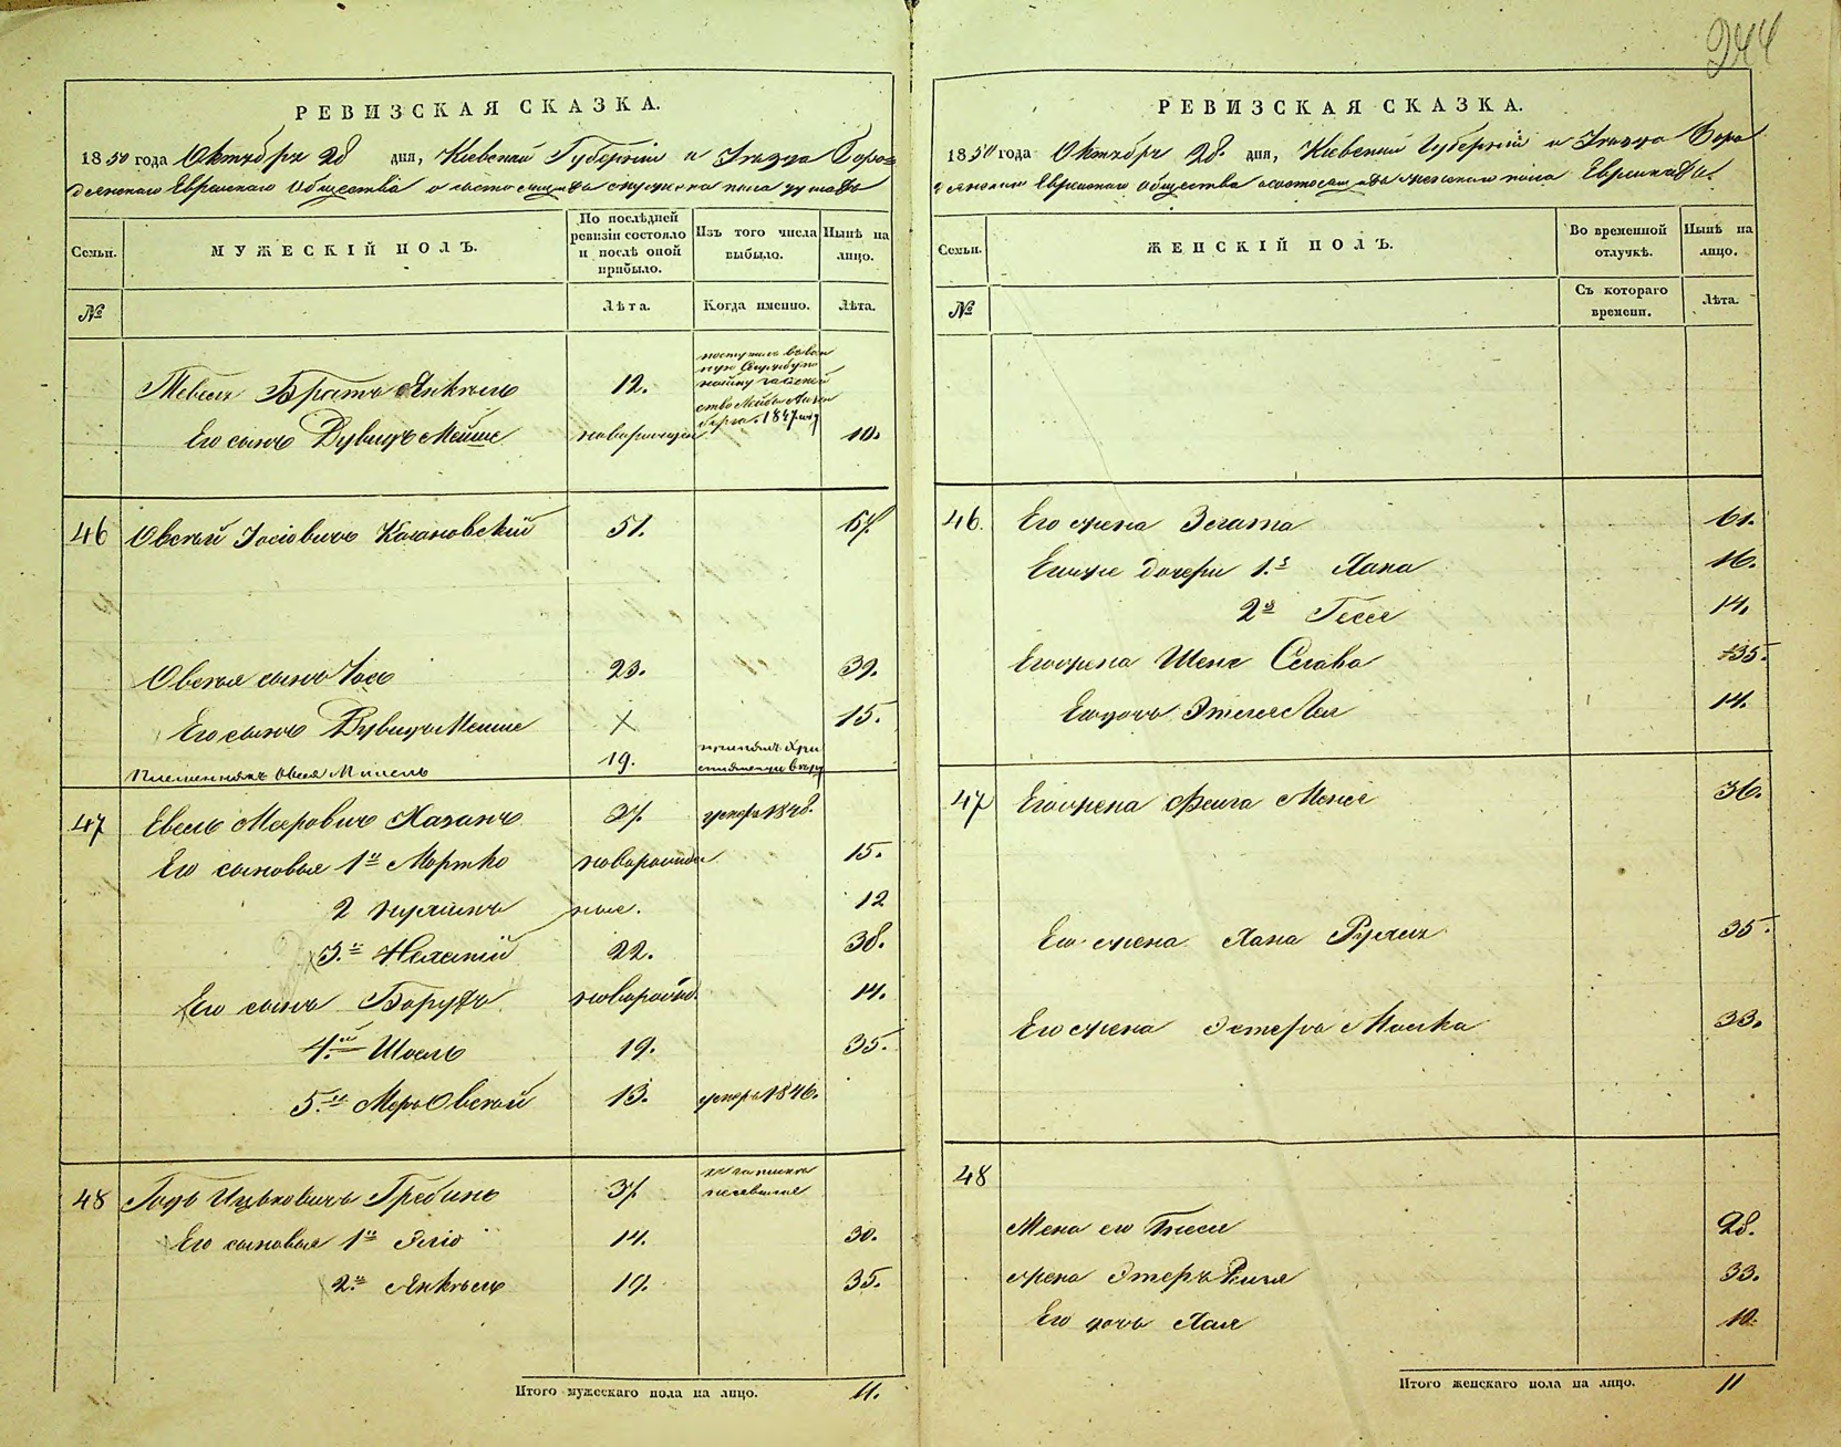 244
РЕВИЗСКАЯ СКАЗКА.
1850 года Октября 28 дня, Кіевской Губерніи и Уѣзда Боро=
дянскаго Еврейскаго Общества о состоящихъ мужеска пола душахъ
Семьи.
МУЖЕСКІЙ ПОЛЪ.
По послѣдней ревизіи состояло и послѣ оной прибыло.
Изъ того числа выбыло.
Нынѣ на лицо.
№
Лѣта.
Когда именно.
Лѣта.
Братъ Янкель 12. 1847 году
Его сынъ Дувидъ Мейше новорожден 10.
46 Овсѣй Іосіовичъ Кагановскій 51. 67.
Овсѣя сынъ Іось 23. 39.
Его сынъ Дувидъ Мейше X 15.
Племянникъ Овсея 19. принялъ хри
стіянскую вѣру
47 Евель Меровичъ Хазанъ 37. умеръ 1848.
Его сыновья 1й Мортко новорожден 15.
2 ные. 12
3й 22. 38.
Его сынъ Борухъ новорожд. 14.
4й Шоель 19. 35.
5й Меръ Овсѣй 13. умеръ 1846.
48 Гадь Ицьковичъ Гребинь 37.
Его сыновья 1й Эліо 14. 30.
2й Янкель 19. 35.
Итого мужескаго пола на лицо. 11.
РЕВИЗСКАЯ СКАЗКА.
1850 года Октября 28. дня, Кіевской Губерніи и Уѣзда Боро
дянскаго Еврейскаго Общества о состоящихъ женскаго пола Еврейкахъ.
Семьи.
ЖЕНСКІЙ ПОЛЪ.
Во временной отлучкѣ.
Нынѣ на лицо.
№
Съ котораго времени.
Лѣта.
46. Его жена Злата 61.
Его же дочери 1я Хана 16.
2я Гесея 14.
Его жена Слава 35.
Его дочь 14.
47 Его жена Фейга 36.
Его жена Хана Рухля 35.
Его жена Эстеръ Малка 33.
48
Жена его 28.
жена Этеръ 33.
Его дочь Хая 10.
Итого женскаго пола на лицо. 11